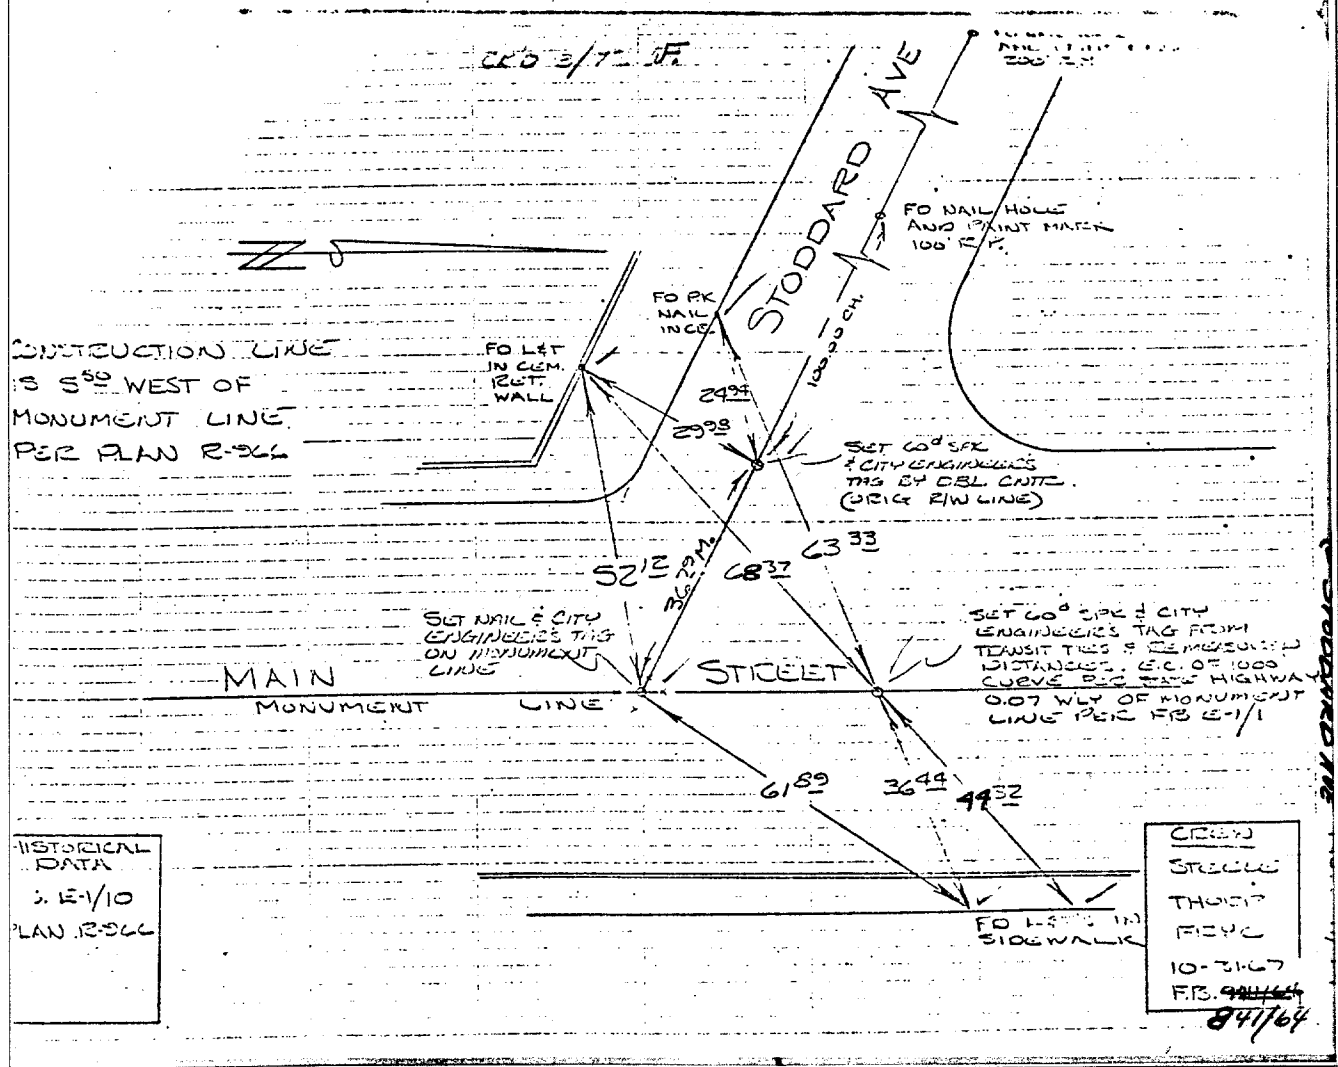 CK'D 3/7 F.
200'
STODDARD AVE
FO NAIL HOLE
AND PAINT MARK
100' R.P.
FO P.K.
NAIL
IN CE.
FO L&T
IN CEM.
RET.
WALL
CONSTRUCTION LINE
IS 5 50 WEST OF
MONUMENT LINE
PER PLAN R-966
100.00 CH.
24 94
29 98
SET 60d SPK
& CITY ENGINEER'S
TAG BY DBL CNTR.
(ORIG R/W LINE)
52 12
36.29 M.
68 37
63 33
SET NAIL & CITY
ENGINEER'S TAG
ON MONUMENT
LINE
SET 60d SPK & CITY
ENGINEER'S TAG FROM
TRANSIT TIES &
DISTANCES. E.C. OF 1000
CURVE PER HIGHWAY
0.07 WLY OF MONUMENT
LINE PER FB E-1/1
MAIN STREET
MONUMENT LINE
STODDARD AVE
61 89
36 44
44 32
HISTORICAL
DATA
E-1/10
PLAN R-966
FO L&T'S IN
SIDEWALK
CREW
STEELE
THORP
10-31-67
F.B.
841/64